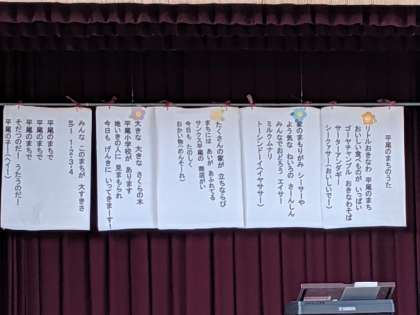 平尾のまちのうた
リトルおきなわ 平尾のまち
おいしい食べものが いっぱい
ゴーヤチャンプル おきなわそば
サーターアンダギー
シークヮサー(おいしいでー)
愛のまもりがみ シーサーや
よう気な ねいろの さーんしん
みんなでおどろう エイサー
ミルクムナリ
トーシンドーイ(イヤササー)
たくさんの家が 立ちならび
まちには あいが あふれてる
サンクス平尾の 商店がい
今日も たのしく
おかい物(めんそーれ)
大きな 大きな さくらの木
平尾小学校が あります
地いきの人に 見まもられ
今日も げんきに いってきまーす!
みんな このまちが 大すきさ
平尾のまちで
平尾のまちで
平尾のまちで
そだつのだー うたうのだー
平尾の子ー(ヘイ!)